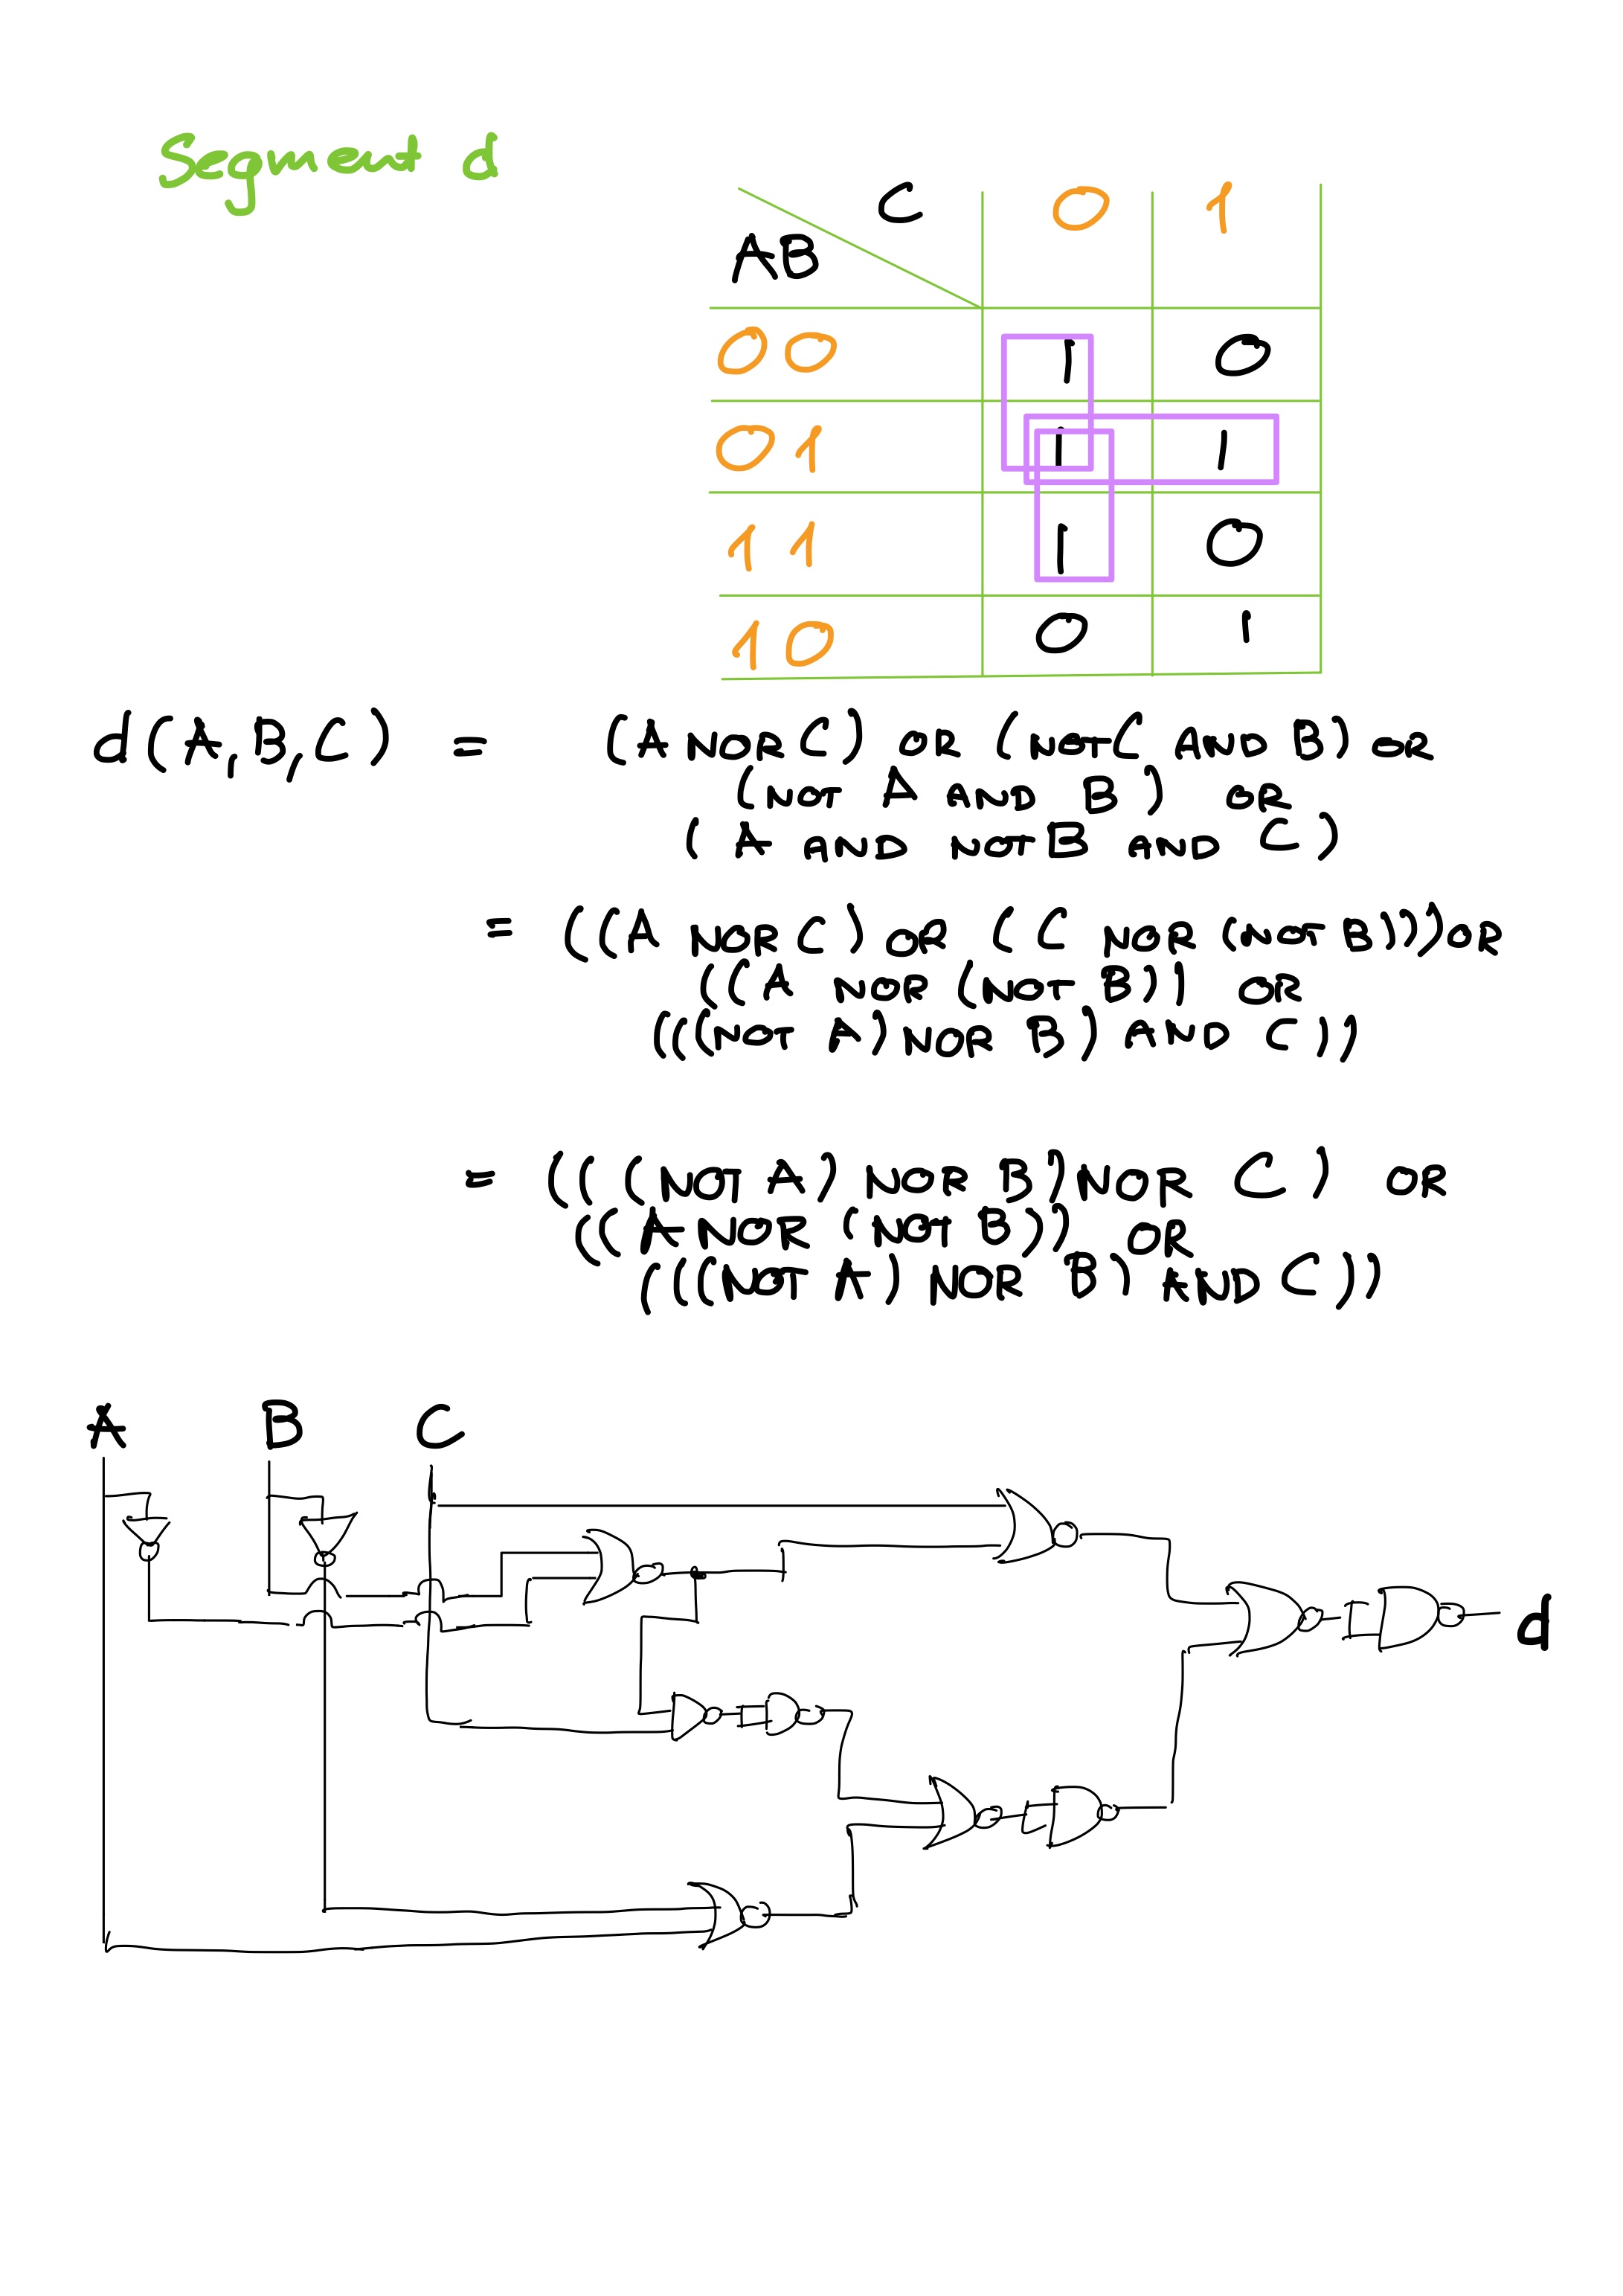 Segment d
C 0 1
AB
00 1 0
01 1 1
11 1 0
10 0 1
d(A,B,C) = (A NOR C) OR (NOT C AND B) OR
(NOT A AND B) OR
(A AND NOT B AND C)
= ((A NOR C) OR (C NOR (NOT B))) OR
((A NOR (NOT B)) OR
(((NOT A) NOR B) AND C))
= (((NOT A) NOR B) NOR C) OR
((A NOR (NOT B)) OR
((((NOT A) NOR B) AND C))
A B C
d